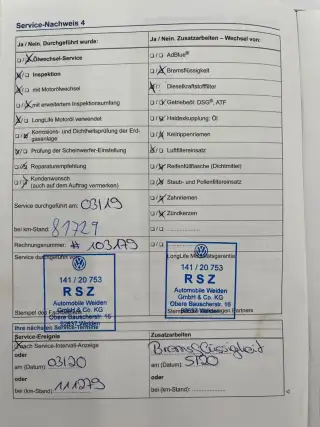 Service-Nachweis 4
Ja / Nein. Durchgeführt wurde:
Ölwechsel-Service
Inspektion
mit Motorölwechsel
mit erweitertem Inspektionsumfang
LongLife Motoröl verwendet
Korrosions- und Dichtheitsprüfung der Erd-
gasanlage
Prüfung der Scheinwerfer-Einstellung
Reparaturempfehlung
Kundenwunsch
(auch auf dem Auftrag vermerken)
Service durchgeführt am: 03/19
bei km-Stand: 81729
Rechnungsnummer: # 103179
Service durchgeführt
141 / 20 753
RSZ
Automobile Weiden
GmbH & Co. KG
Obere Bauscherstr. 16
92637 Weiden
Stempel des
Ihre nächsten Service-Termine
Service-Ereignis
nach Service-Intervall-Anzeige
oder
am (Datum): 03/20
oder
bei (km-Stand): 111279
Ja / Nein. Zusatzarbeiten – Wechsel von:
AdBlue®
Bremsflüssigkeit
Dieselkraftstofffilter
Getriebeöl DSG®, ATF
Haldexkupplung: Öl
Keilrippenriemen
Luftfiltereinsatz
Reifenfüllflasche (Dichtmittel)
Staub- und Pollenfiltereinsatz
Zahnriemen
Zündkerzen
LongLife Mobilitätsgarantie
141 / 20 753
RSZ
Automobile Weiden
GmbH & Co. KG
Obere Bauscherstr. 16
92637 Weiden
Partners
Zusatzarbeiten
Bremsflüssigkeit
am (Datum): 5/20
oder
bei (km-Stand):